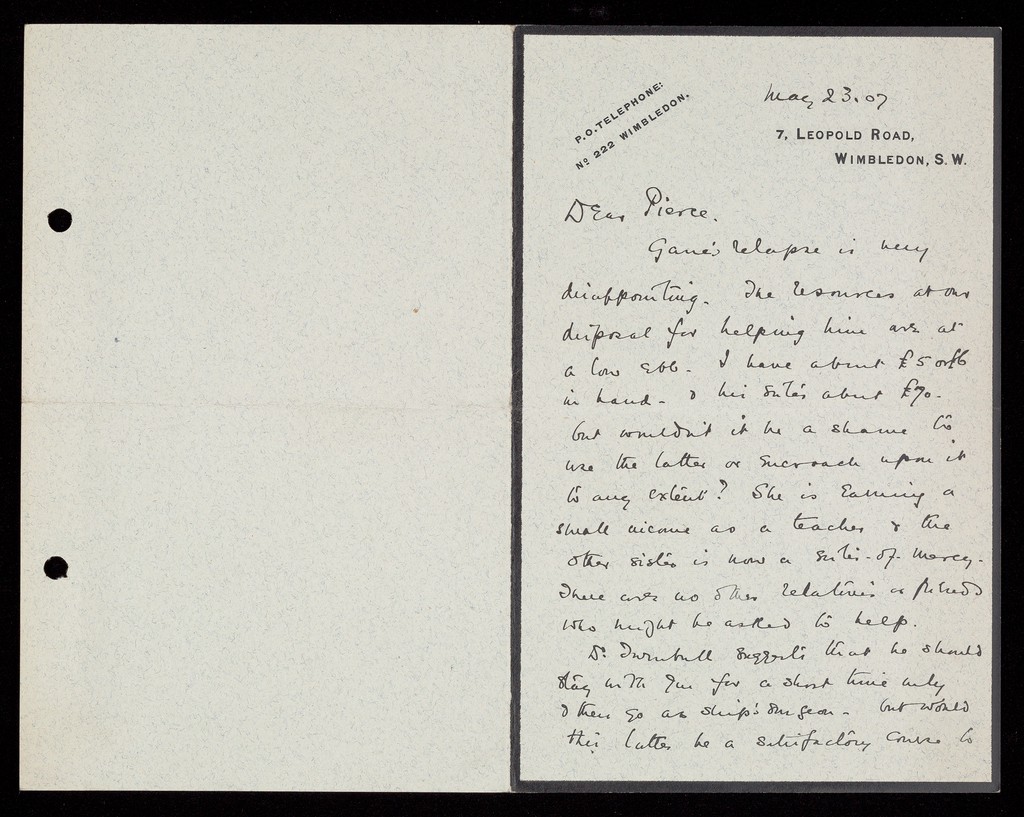 May 23.07
P.O. TELEPHONE:
Nº 222 WIMBLEDON.
7, LEOPOLD ROAD,
WIMBLEDON, S.W.
Dear Pierce.
Gane's relapse is very
disappointing. The resources at our
disposal for helping him are at
a low ebb - I have about £5 or £6
in hand - & his sister about £70.
but wouldn't it be a shame to
use the latter or encroach upon it
to any extent? She is Earning a
small income as a teacher & the
other sister is now a sister-of-mercy.
There are no other relatives or friends
who might be asked to help.
Dr. Turnbull suggests that he should
stay with you for a short time only
& then go as ship's surgeon - but would
this latter be a satisfactory course to